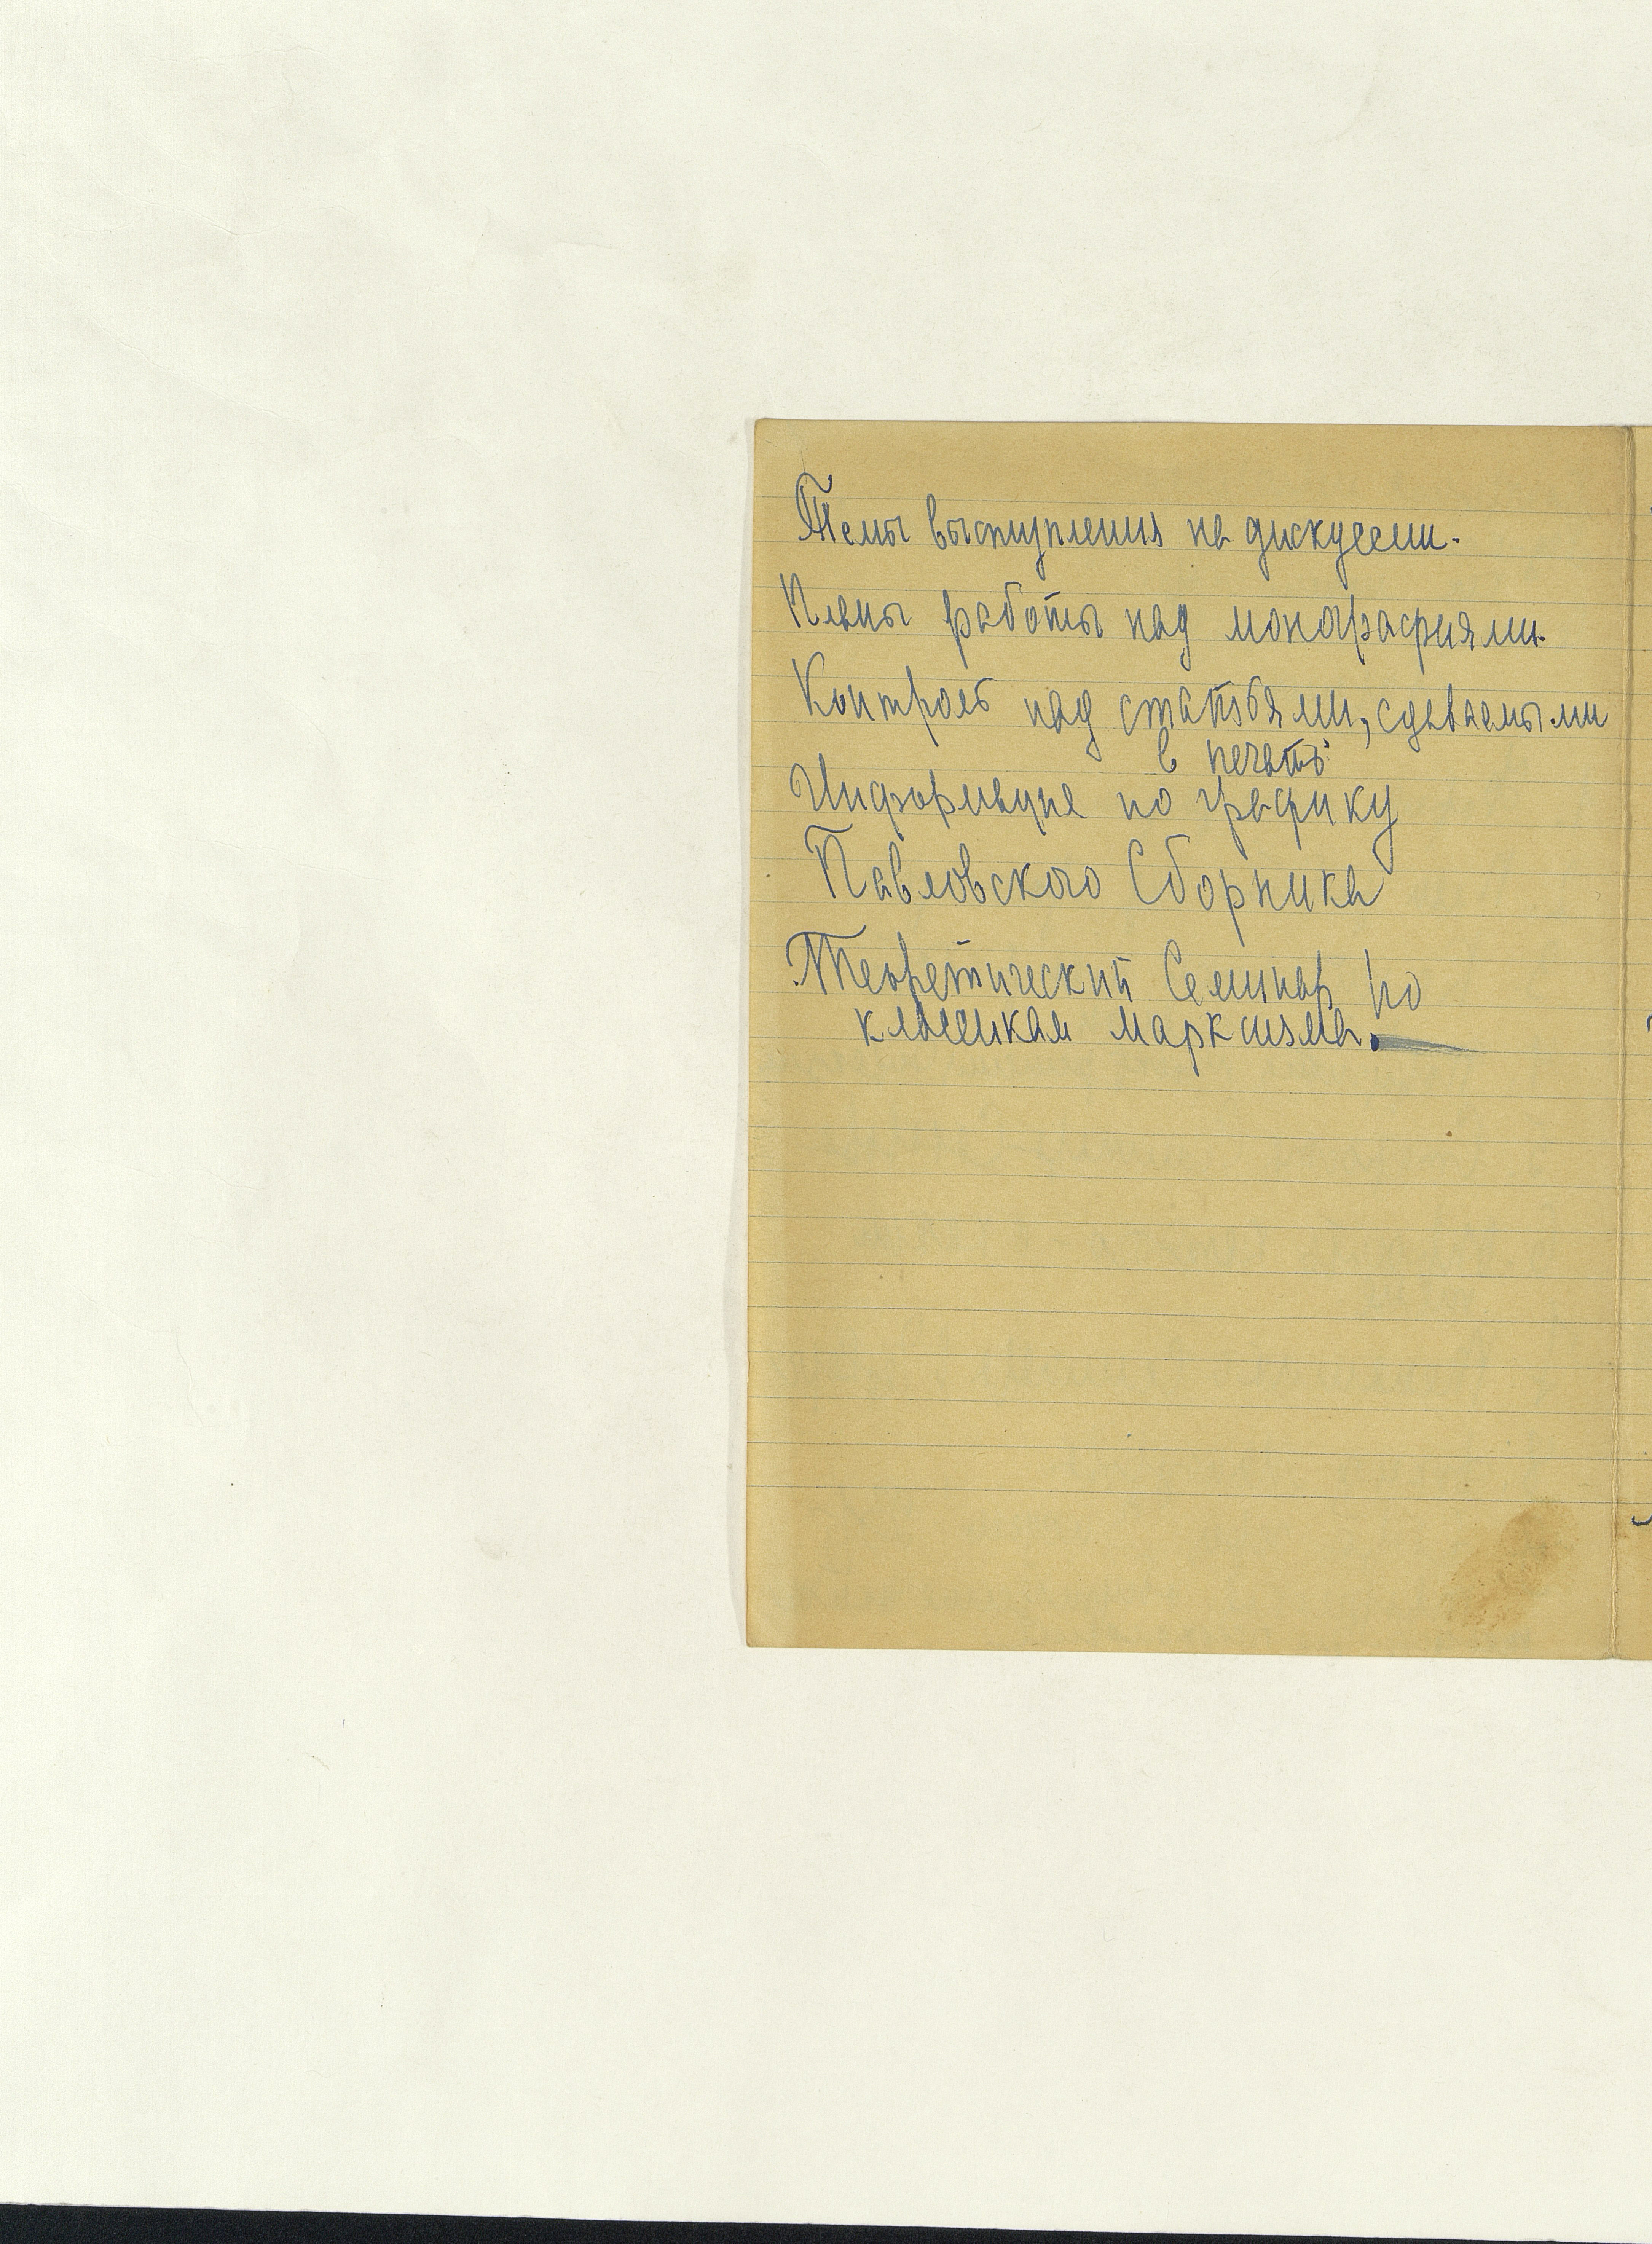 Темы выступления на дискуссии.
Планы работы над монографиями.
Контроль над статьями, сдаваемыми
в печать.
Информация по графику
Павловского Сборника
Теоретический Семинар по
классикам марксизма.